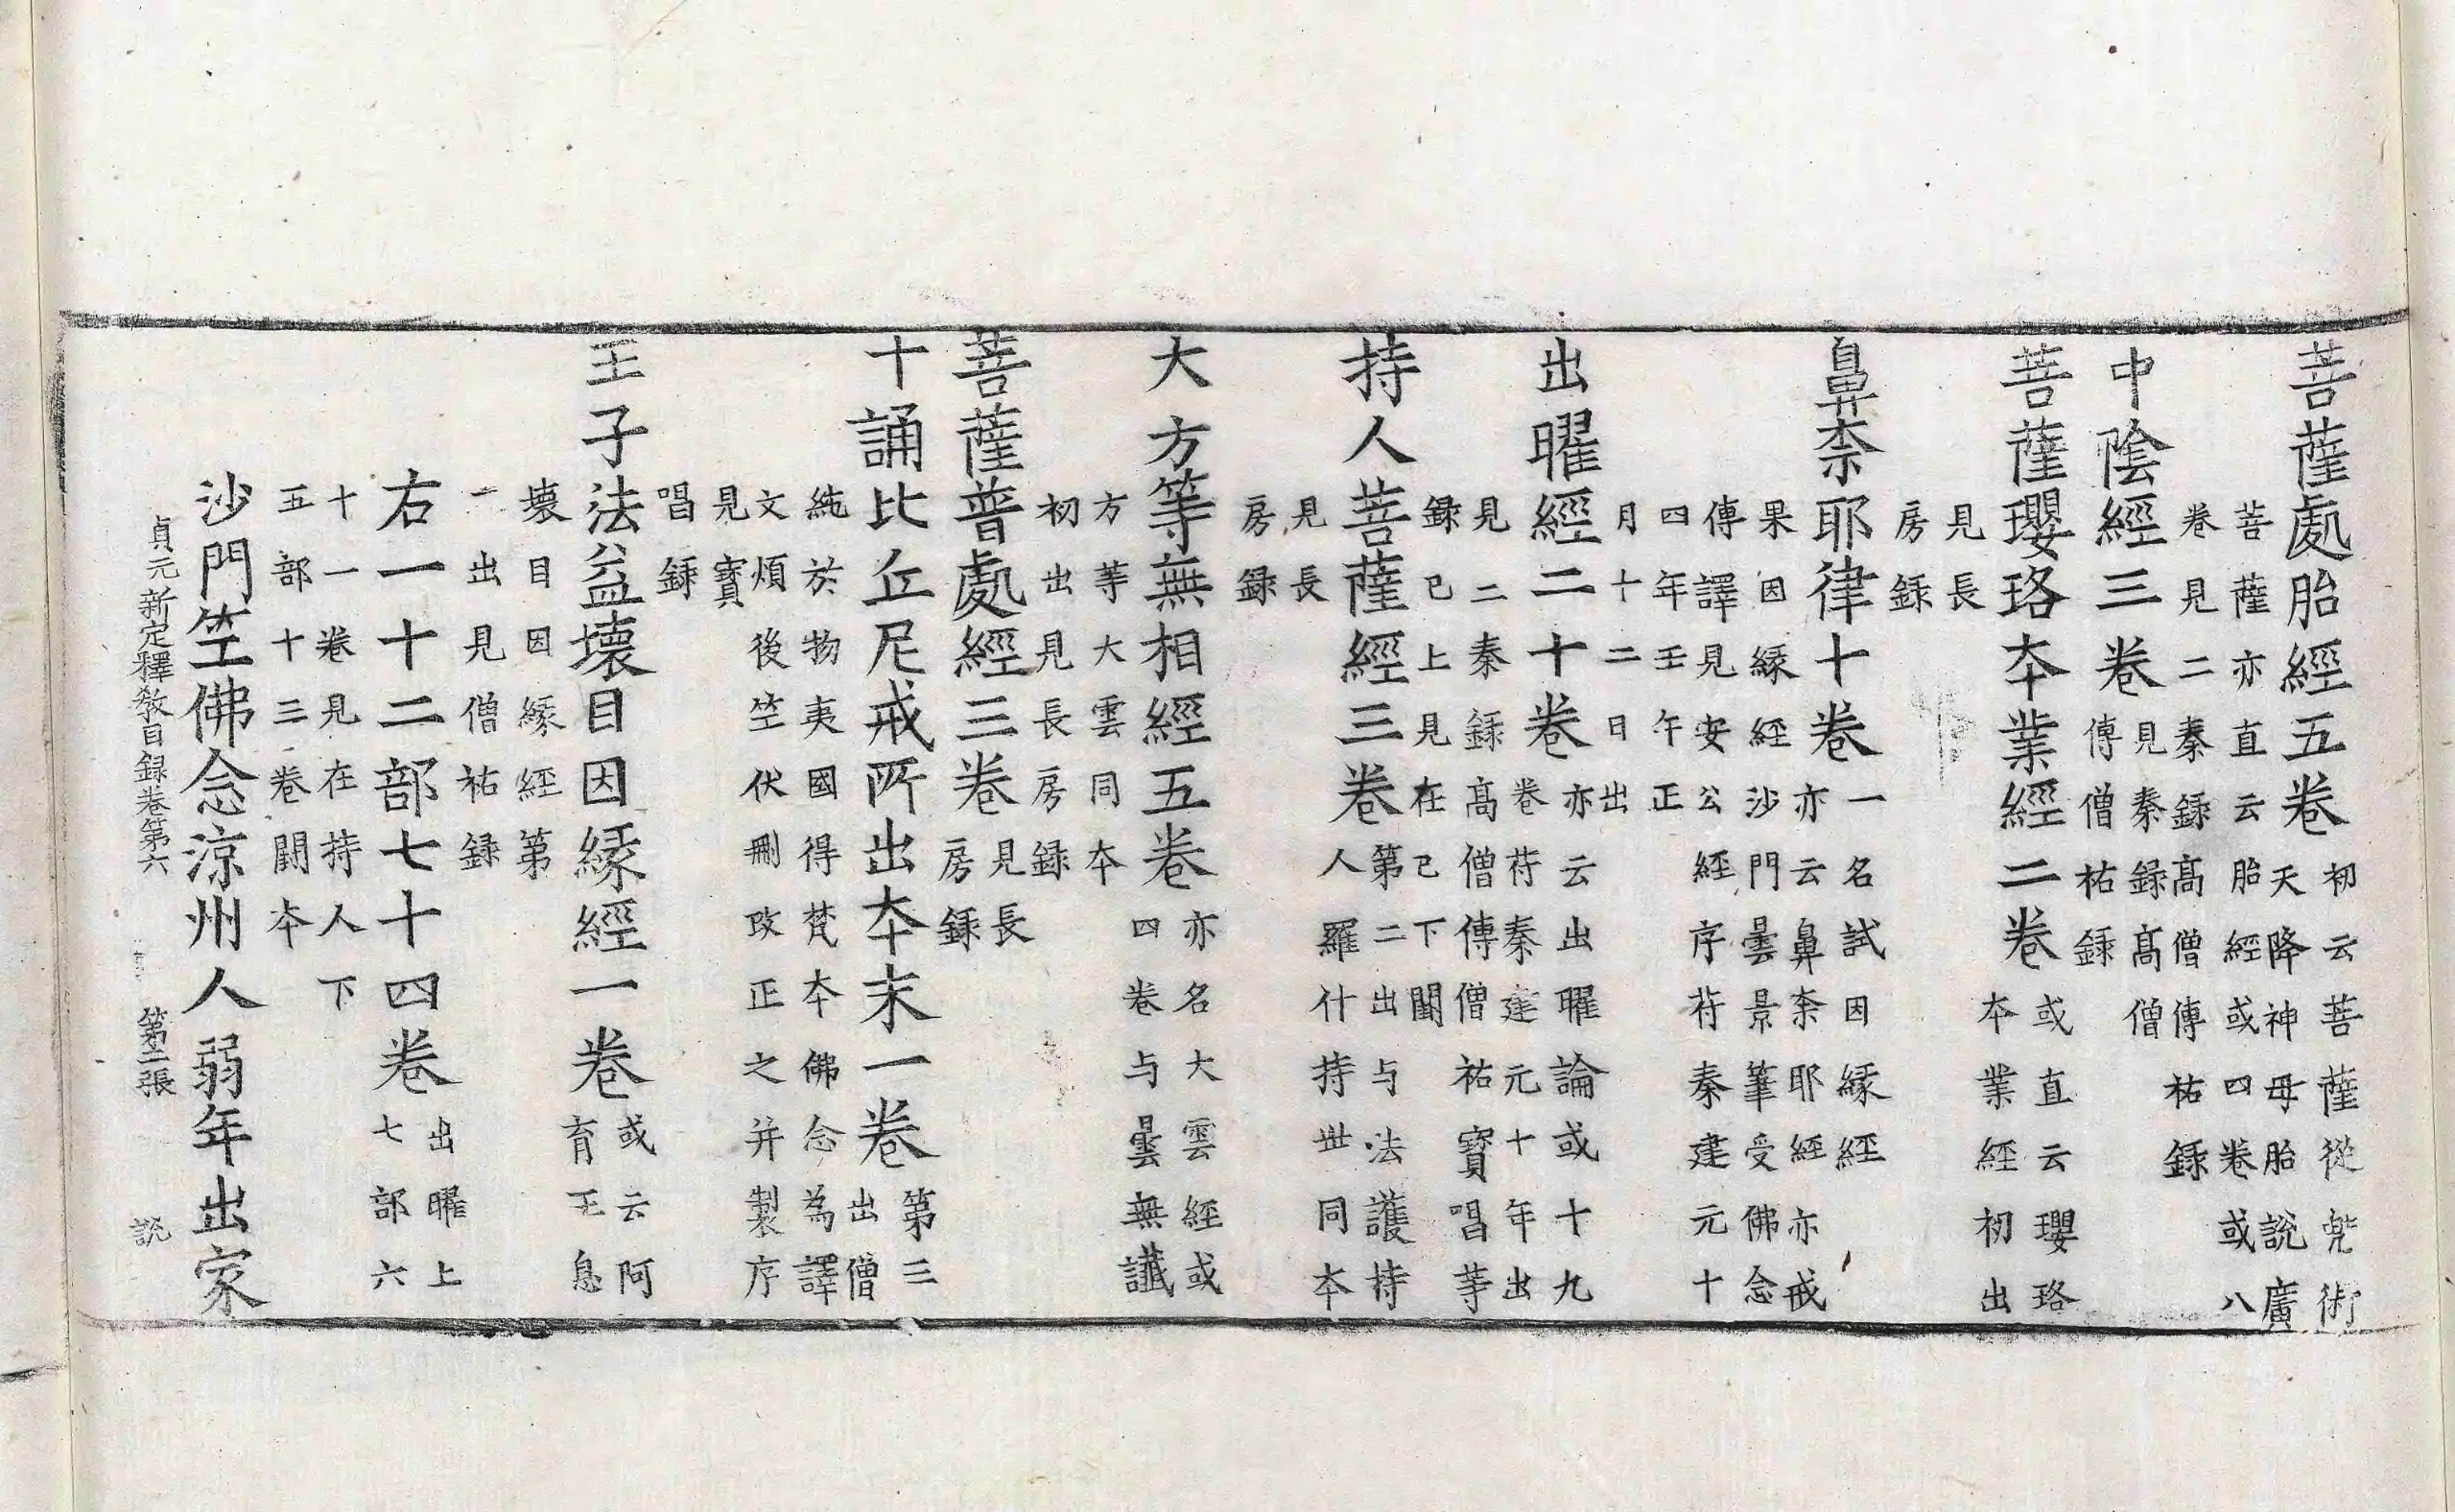 菩薩處胎經五卷
初云菩薩從兜術
天降神母胎說廣
菩薩亦直云胎經或四卷或八
卷見二秦録高僧傳祐録
中陰經三卷
見秦録高僧
傳僧祐録
菩薩瓔珞本業經二卷
或直云瓔珞
本業經初出
見長
房録
鼻柰耶律十卷
一名試因緣經
亦云鼻柰耶經亦戒
果因緣經沙門曇景筆受佛念
傳譯見安公經序苻秦建元十
四年壬午正
月十二日出
出曜經二十卷
亦云出曜論或十九
卷苻秦建元十年出
見二秦録高僧傳僧祐寶唱等
録已上見在已下闕
持人菩薩經三卷
第二出与法護持
人羅什持世同本
見長
房録
大方等無相經五卷
亦名大雲經或
四卷与曇無讖
方等大雲同本
初出見長房録
菩薩普處經三卷
見長
房録
十誦比丘尼戒所出本末一卷
第三
出僧
純於物夷國得梵本佛念為譯
文煩後竺伏刪改正之并製序
見寶
唱録
王子法益壞目因緣經一卷
或云阿
育王息
壞目因緣經第
一出見僧祐録
右一十二部七十四卷
出曜上
七部六
十一卷見在持人下
五部十三卷闕本
沙門竺佛念涼州人弱年出家
貞元新定釋教目録卷第六 第二張 說